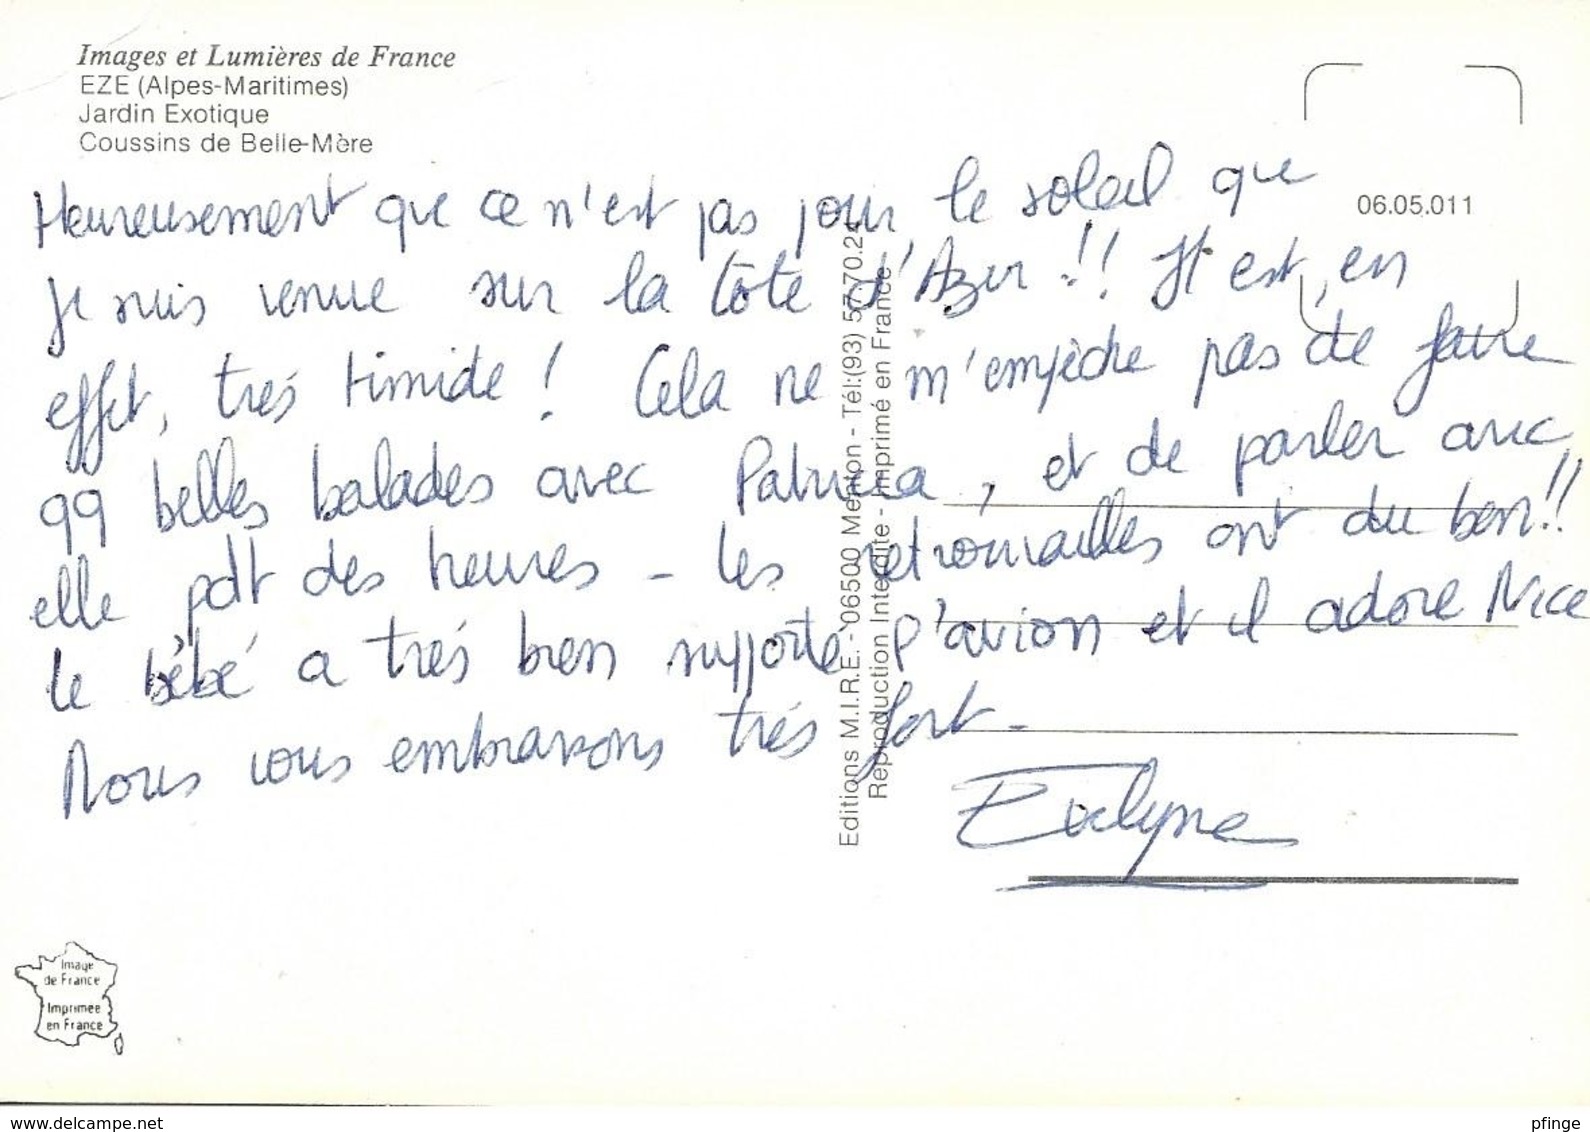 Images et Lumières de France
EZE (Alpes-Maritimes)
Jardin Exotique
Coussins de Belle-Mère
06.05.011
Heureusement que ce n'est pas pour le soleil que
je suis venue sur la Côte d'Azur !! Il est, en
effet, très timide ! Cela ne m'empèche pas de faire
qq belles balades avec Patricia, et de parler avec
elle pdt des heures - les retrouvailles ont du bon!!
le bébé a très bien supporté l'avion et il adore Nice
Nous vous embrassons très fort -
Evelyne
Editions M.I.R.E. - 06500 Menton - Tél:(93) 57.70.24
Reproduction Interdite - Imprimé en France
Image
de France
Imprimée
en France
www.delcampe.net
pfinge